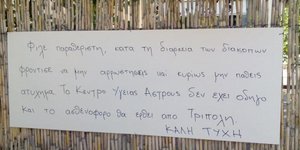 Φιλε παραθεριστη, κατα τη διαρκεια των διακοπων
φροντισε να μην αρρωστησεις και κυριως μην παθεις
ατυχημα. Το Κεντρο Υγειας Αστρους δεν εχει οδηγο
και το ασθενοφορο θα ερθει απο Τριπολη.
ΚΑΛΗ ΤΥΧΗ